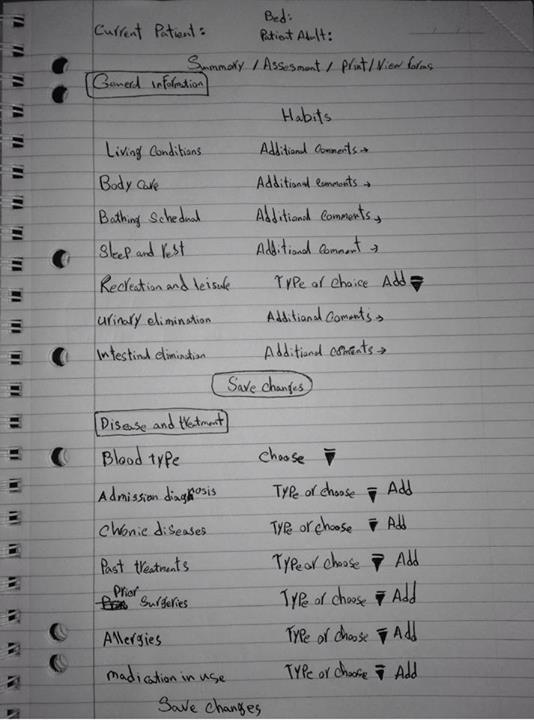 Bed:
Current Patient:
Patient Adult:
Summory / Assesment / Print / View forms
General information
Habits
Living Conditions Additional Comments →
Body Care Additional comments →
Bathing Schedual Additional Comments →
Sleep and rest Additional Comment →
Recreation and leisure Type or choice Add
urinary elimination Additional Coments →
Intestinal elimination Additional coments →
Save changes
Disease and treatment
Blood type choose
Admission diagnosis Type or choose Add
Chronic diseases Type or choose Add
Past treatments Type or choose Add
Prior
Surgeries Type or choose Add
Allergies Type or choose Add
madication in use Type or choose Add
Save changes